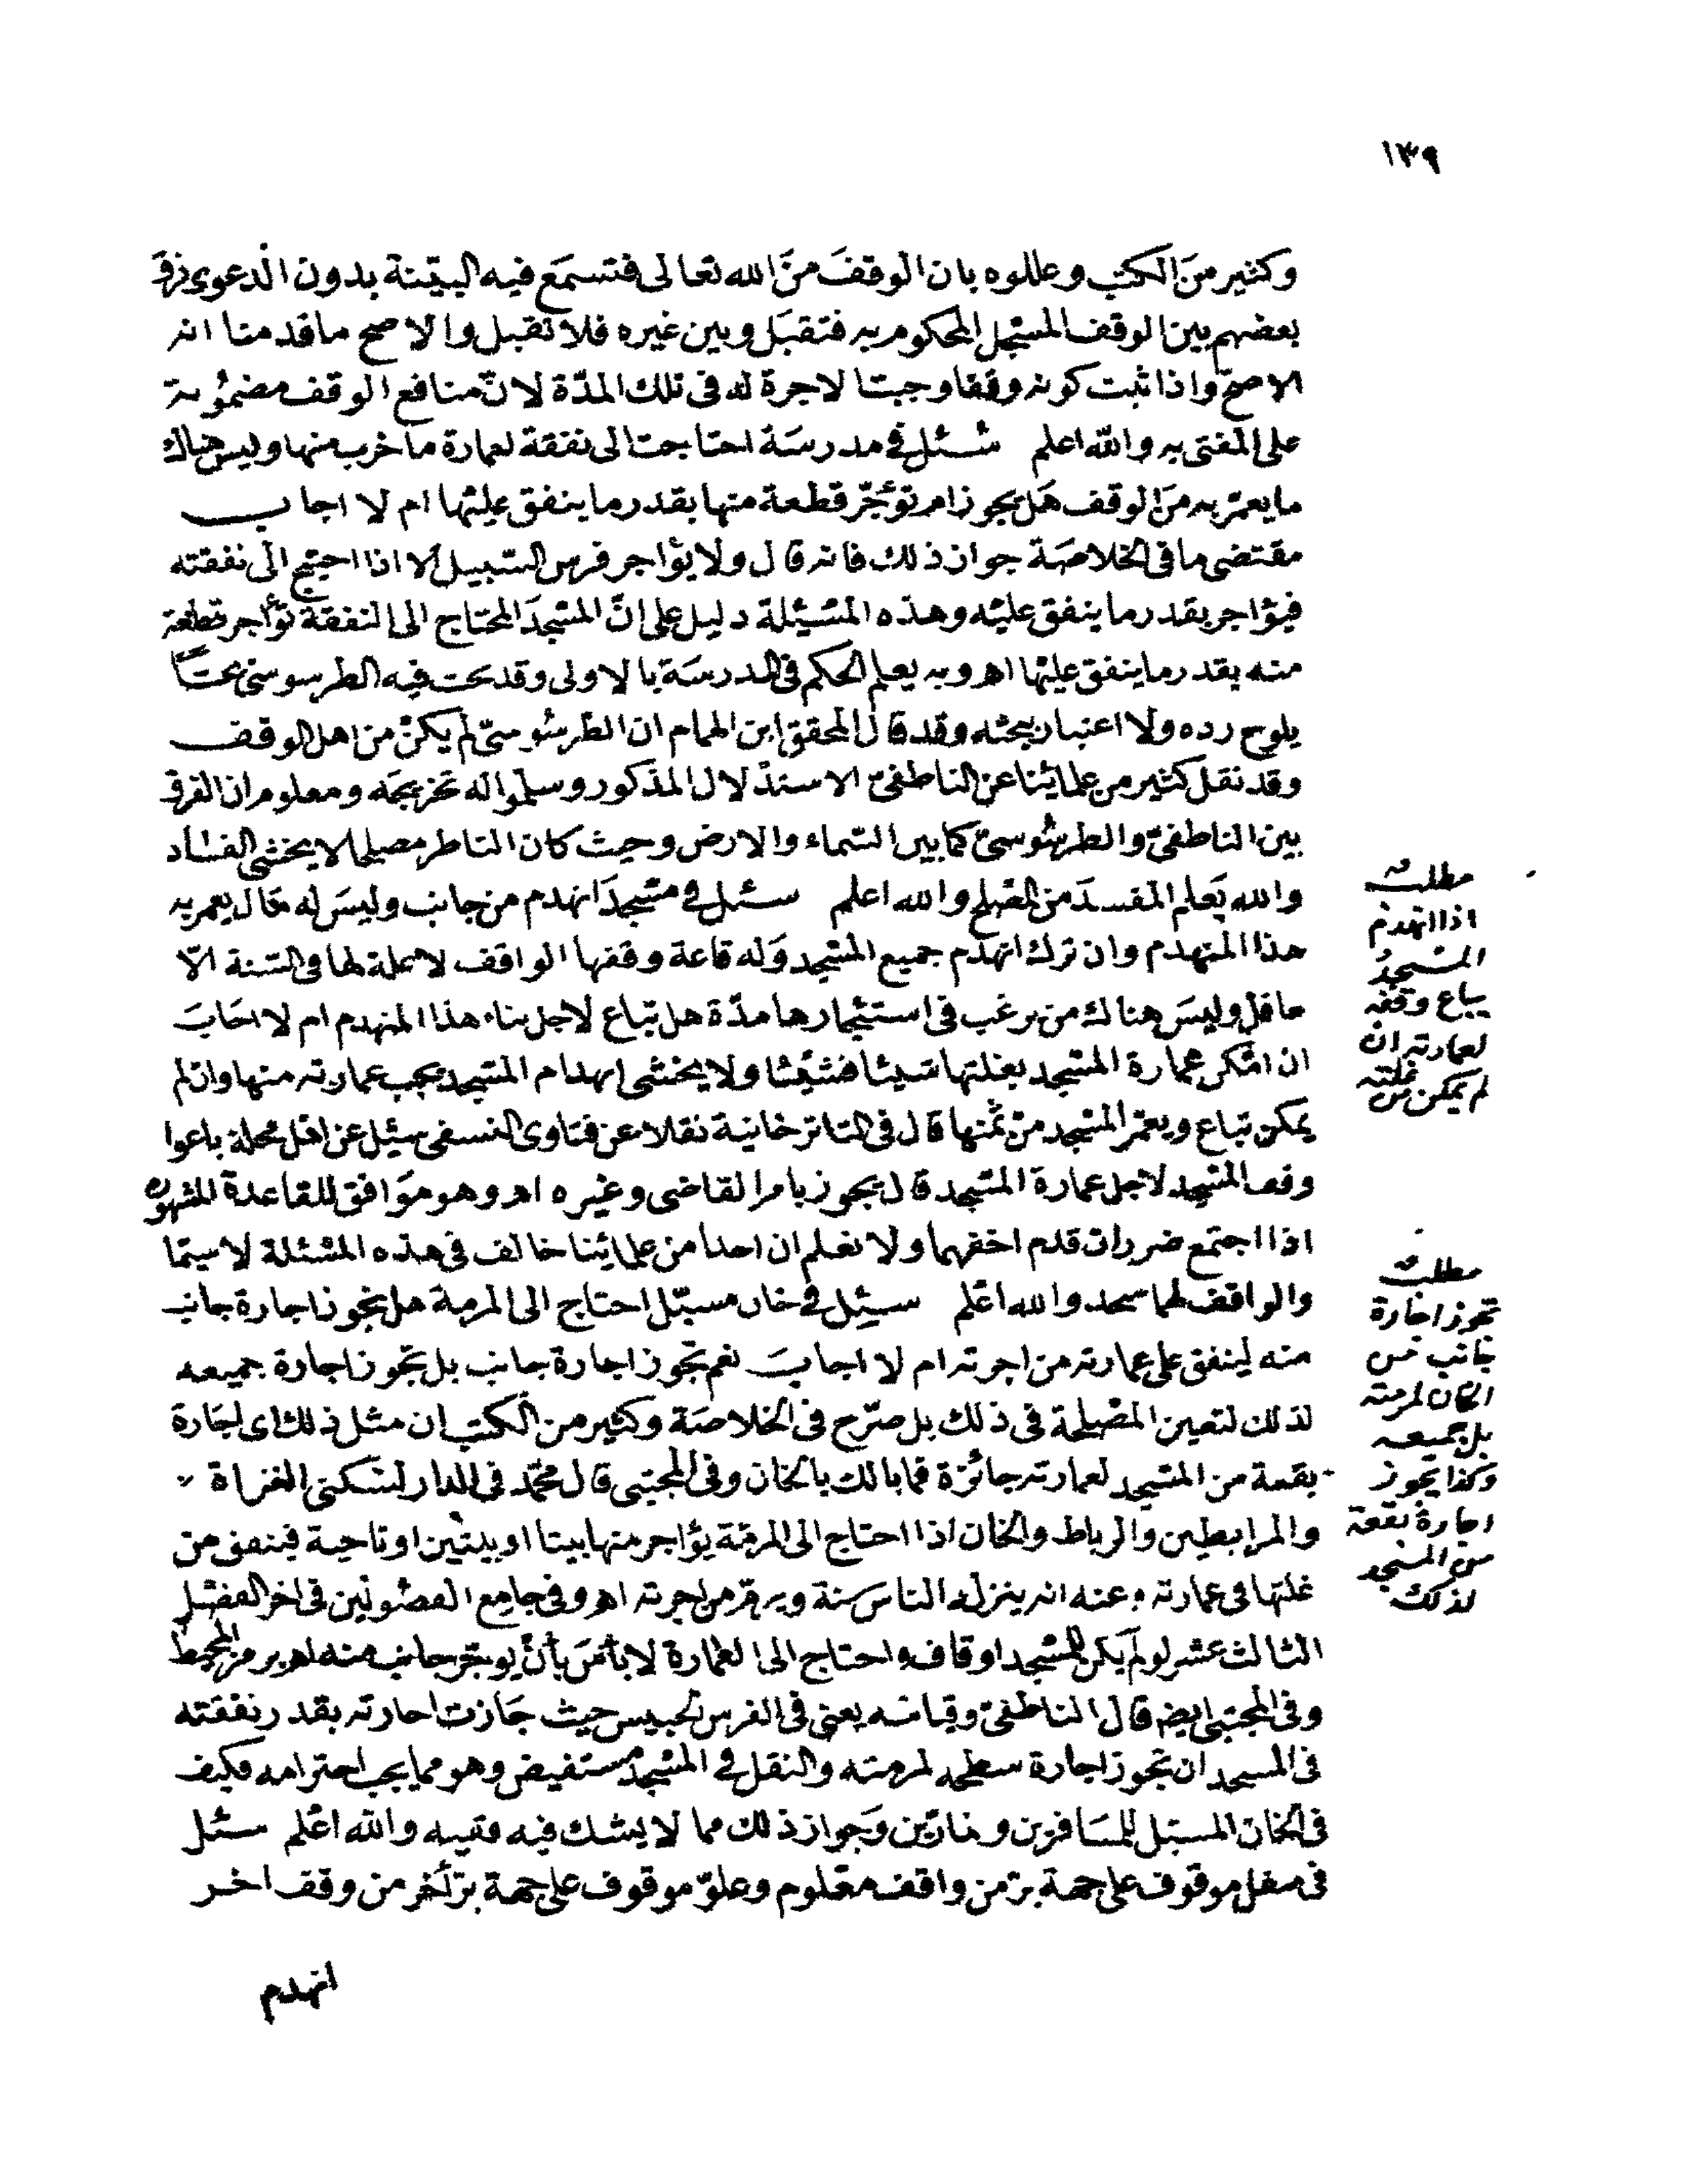 ١٣٩
وكثير من الكتب وعللوه بان الوقف من الله تعالى فتسمع فيه البينة بدون الدعوى فرق
بعضهم بين الوقف المسجل المحكوم به فتقبل وبين غيره فلا تقبل والاصح ما قدمنا انه
الاصح واذا ثبت كونه وقفا وجبت الاجرة له في تلك المدة لان منافع الوقف مضمونة
على المفتى به والله اعلم سئل في مدرسة احتاجت الى نفقة لعمارة ما خرب منها وليس هناك
ما يعمر به من الوقف هل يجوز ام تؤجر قطعة منها بقدر ما ينفق عليها ام لا اجاب
مقتضى ما في الخلاصة جواز ذلك فانه قال ولا يؤاجر فرس السبيل الا اذا احتيج الى نفقته
فيؤاجر بقدر ما ينفق عليه وهذه المسئلة دليل على ان المسجد المحتاج الى النفقة تؤاجر قطعة
منه بقدر ما ينفق عليها اهـ وبه يعلم الحكم في المدرسة بالاولى وقد بحث فيه الطرسوسي بحثا
يلوح رده ولا اعتبار ببحثه وقد قال المحقق ابن الهمام ان الطرسوسي لم يكن من اهل الوقف
وقد نقل كثير من علمائنا عن الناطفي الاستدلال المذكور وسلموا له تخريجه ومعلوم ان الفرق
بين الناطفي والطرسوسي كما بين السماء والارض وحيث كان الناظر مصلحا لا يخشى الفساد
والله يعلم المفسد من المصلح والله اعلم سئل في مسجد انهدم من جانب وليس له مال يعمر به
هذا المنهدم وان ترك انهدم جميع المسجد وله قاعة وقفها الواقف لا غلة لها في السنة الا
ما قل وليس هناك من يرغب في استئجارها مدة هل تباع لاجل بناء هذا المنهدم ام لا اجاب
ان امكن عمارة المسجد بغلتها شيئا فشيئا ولا يخشى انهدام المسجد يجب عمارته منها وان لم
يمكن تباع ويعمر المسجد من ثمنها قال في التاترخانية نقلا عن فتاوى النسفي سئل عن اهل محلة باعوا
وقف المسجد لاجل عمارة المسجد قال يجوز بامر القاضي وغيره اهـ وهو موافق للقاعدة المشهورة
اذا اجتمع ضرران قدم اخفهما ولا نعلم ان احدا من علمائنا خالف في هذه المسئلة لا سيما
والواقف لهما متحد والله اعلم سئل في خان مسبل احتاج الى المرمة هل يجوز اجارة جانب
منه لينفق على عمارته من اجرته ام لا اجاب نعم تجوز اجارة جانب بل تجوز اجارة جميعه
لذلك لتعين المصلحة في ذلك بل صرح في الخلاصة وكثير من الكتب ان مثل ذلك اي اجارة
بقعة من المسجد لعمارته جائزة فما بالك بالخان وفي المجتبى قال محمد في الدار لسكنى الغزاة
والمرابطين والرباط والخان اذا احتاج الى المرمة يؤاجر منها بيتا او بيتين او ناحية فينفق من
غلتها في عمارته وعنه انه ينزله الناس سنة ويرم من اجرته اهـ وفي جامع الفصولين في اخر الفصل
الثالث عشر لو لم يكن للمسجد اوقاف واحتاج الى العمارة لا بأس بأن يوجر جانب منه اهـ برمز المحيط
وفي المجتبى ايضا قال الناطفي وقياسه يعني في الفرس الحبيس حيث جازت اجارته بقدر نفقته
في المسجد ان تجوز اجارة سطحه لمرمته والنقل في المسجد مستفيض وهو مما يجب احترامه فكيف
في الخان المسبل للمسافرين ومارين وجواز ذلك مما لا يشك فيه فقيه والله اعلم سئل
في سفل موقوف على جهة بر من واقف معلوم وعلو موقوف على جهة بر أخر من وقف اخر
انهدم
مطلب
اذا انهدم
المسجد
يباع وقفه
لعمارته ان
لم يمكن من غلته
مطلب
تجوز اجارة
جانب من
الخان لمرمته
بل جميعه
وكذا يجوز
اجارة بقعة
من المسجد
لذلك